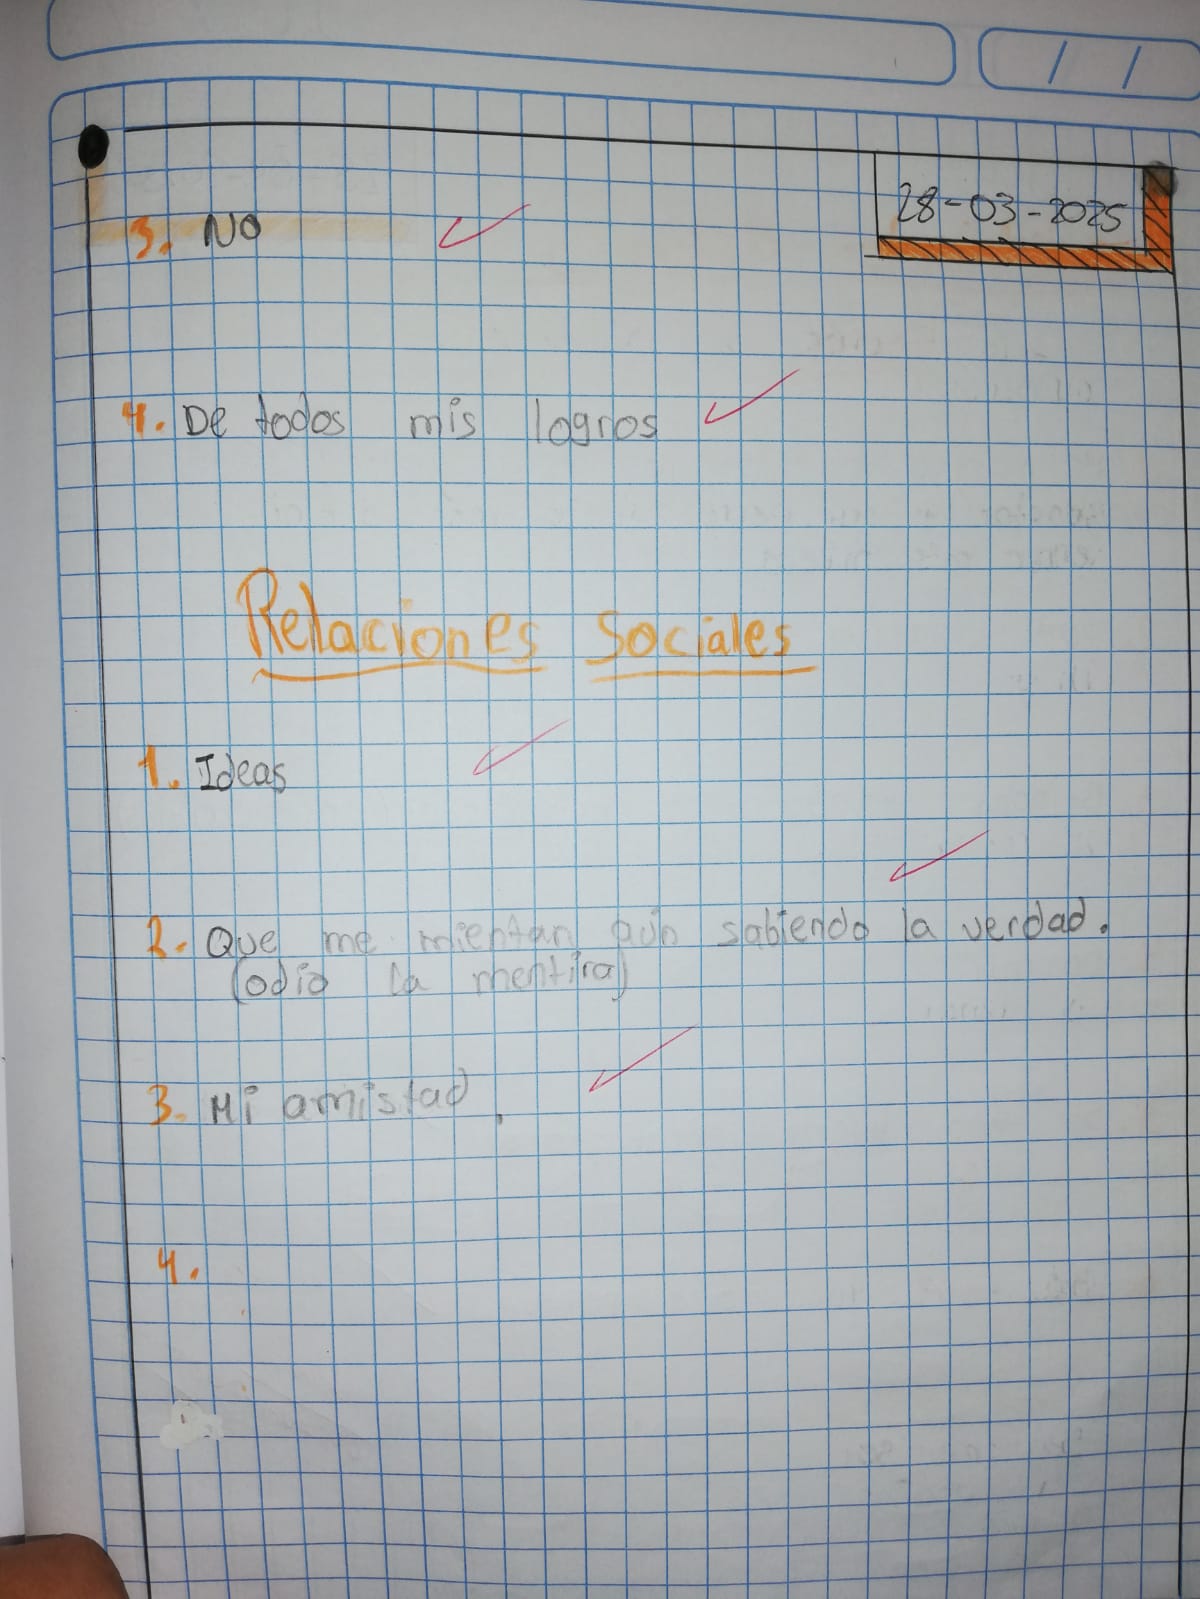 28-03-2025
3. NO
4. De todos mis logros
Relaciones Sociales
1. Ideas
2. Que me mientan aún sabiendo la verdad.
(odio la mentira)
3. Mi amistad.
4.